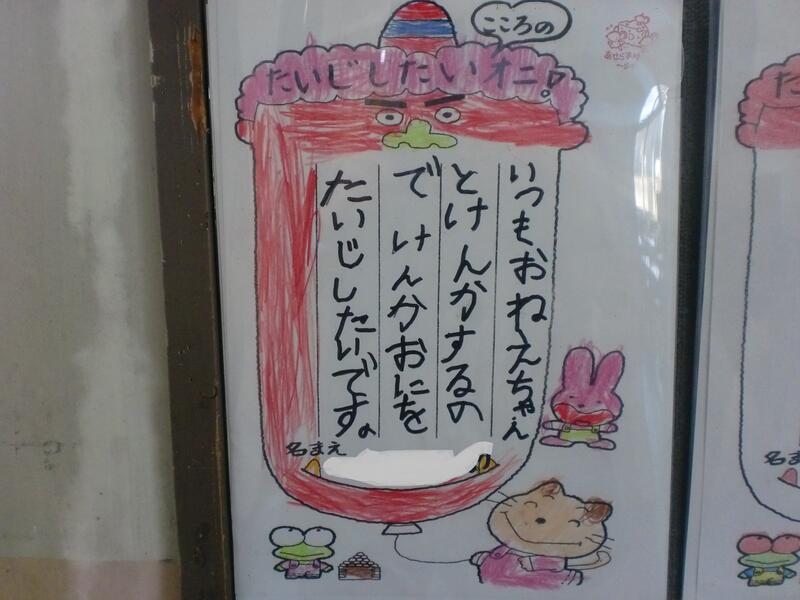 こころの
たいじしたいオニ!
いつもおねえちゃん
とけんかするの
でけんかおにを
たいじしたいです。
名まえ